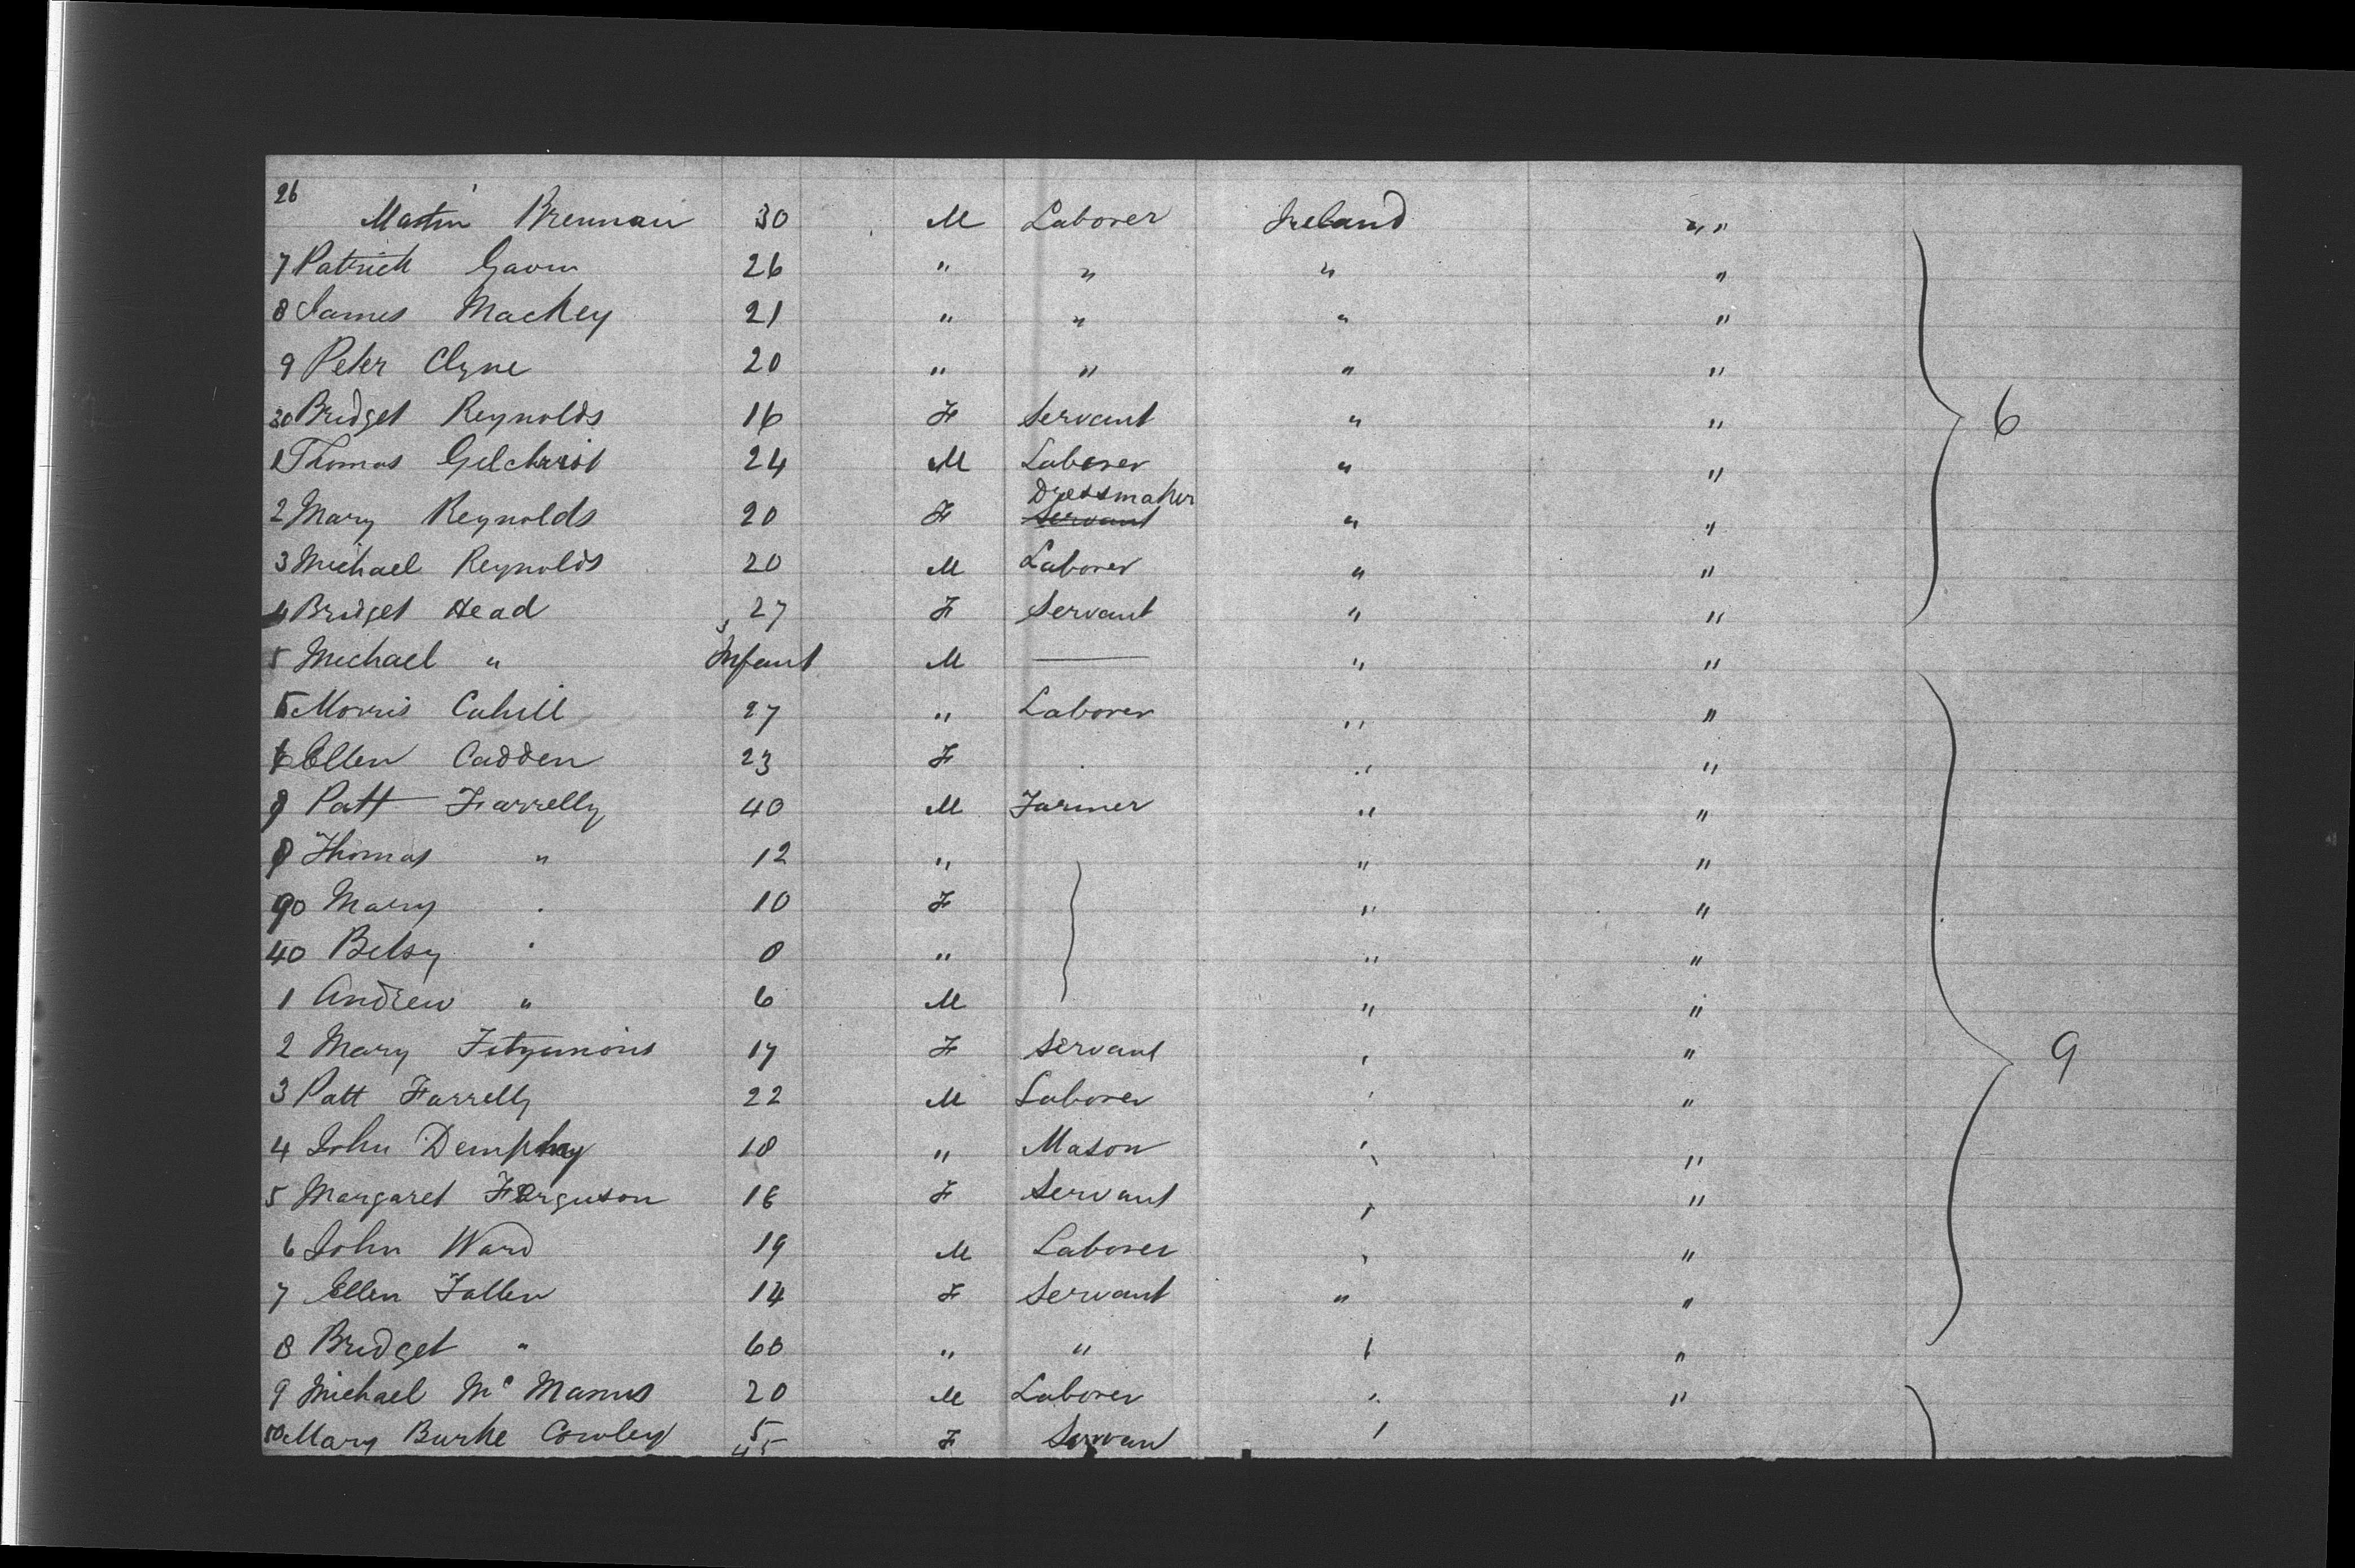 26 Martin Brennan 30 M Laborer Ireland " "
7 Patrick Gavin 26 " " " "
8 James Mackey 21 " " " "
9 Peter Clyne 20 " " " "
30 Bridget Reynolds 16 F Servant " " 6
1 Thomas Gilchrist 24 M Laborer " "
Dressmaker
2 Mary Reynolds 20 F Servant " "
3 Michael Reynolds 20 M Laborer " "
4 Bridget Head 27 F Servant " "
5 Michael " Infant M — " "
Morris Cahill 27 " Laborer " "
Ellen Cadden 23 F " "
Patt Farrelly 40 M Farmer " "
Thomas " 12 " " "
Mary " 10 F " "
40 Betsy " 8 " " "
1 Andrew " 6 M " "
2 Mary Fitzimons 17 F Servant " " 9
3 Patt Farrelly 22 M Laborer " "
4 John Demphey 18 " Mason " "
5 Margaret Ferguson 18 F Servant " "
6 John Ward 19 M Laborer " "
7 Ellen Fallen 14 F Servant " "
8 Bridget " 60 " " " "
9 Michael Mc Manus 20 M Laborer " "
50 Mary Burke Cowley 5 F Servan "
45